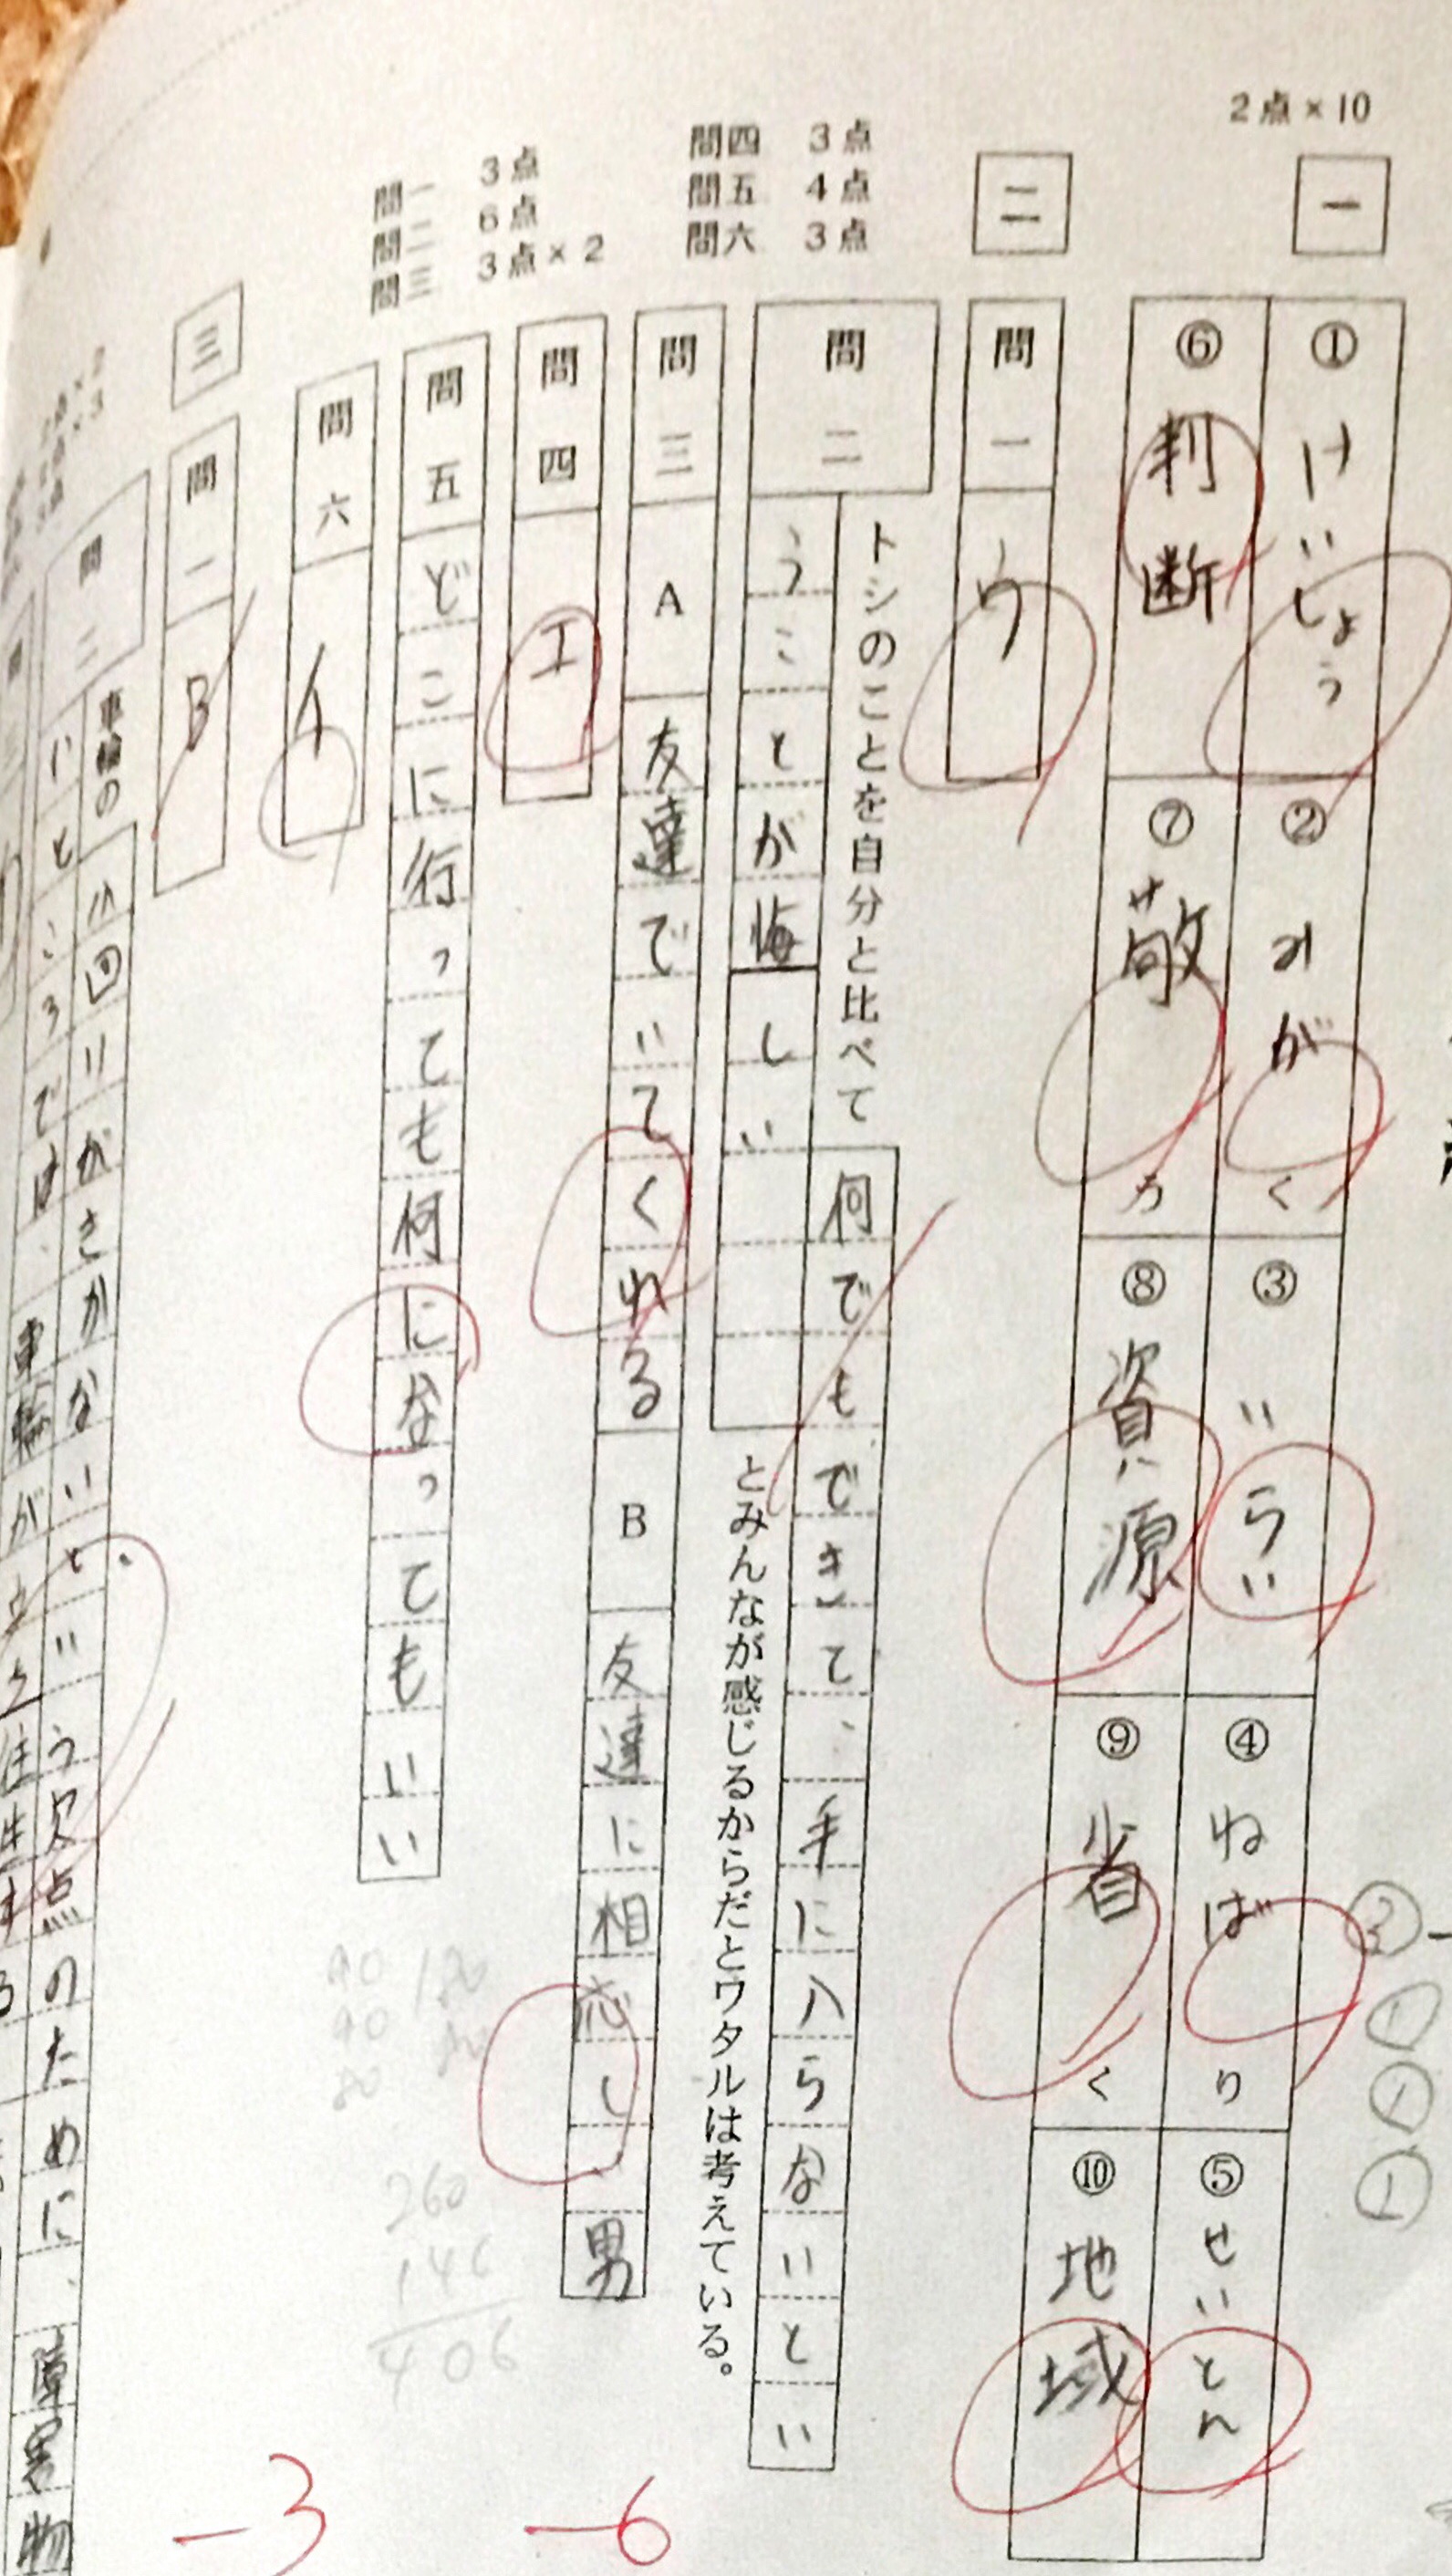 2点×10
一
① けいじょう
② みがく
③ いらい
④ ねばり
⑤ せいとん
⑥ 判断
⑦ 敬う
⑧ 資源
⑨ 省く
⑩ 地域
二
問四 3点
問五 4点
問六 3点
問一 3点
問二 6点
問三 3点×2
問一 ウ
問二 トシのことを自分と比べて
何でもできて、手に入らないとい
うことが悔しい
とみんなが感じるからだとワタルは考えている。
問三 A 友達でいてくれる B 友達に相応しい男
問四 エ
問五 どこに行っても何になってもいい
問六 イ
90
90
80
260
146
406
-6
-3
三
問一 B
問二 車輪の
小回りがきかないという欠点のために、障害物
いところでは、車輪が